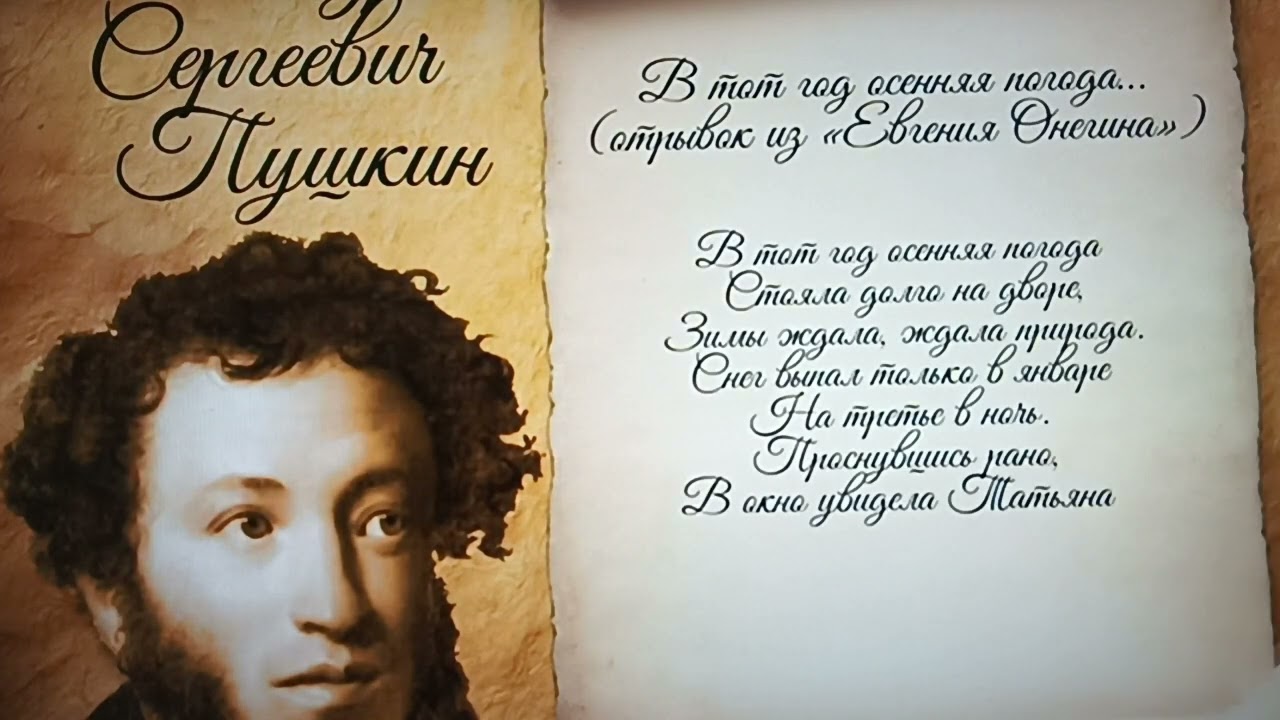 Сергеевич
Пушкин
В тот год осенняя погода...
(отрывок из «Евгения Онегина»)
В тот год осенняя погода
Стояла долго на дворе,
Зимы ждала, ждала природа.
Снег выпал только в январе
На третье в ночь.
Проснувшись рано,
В окно увидела Татьяна